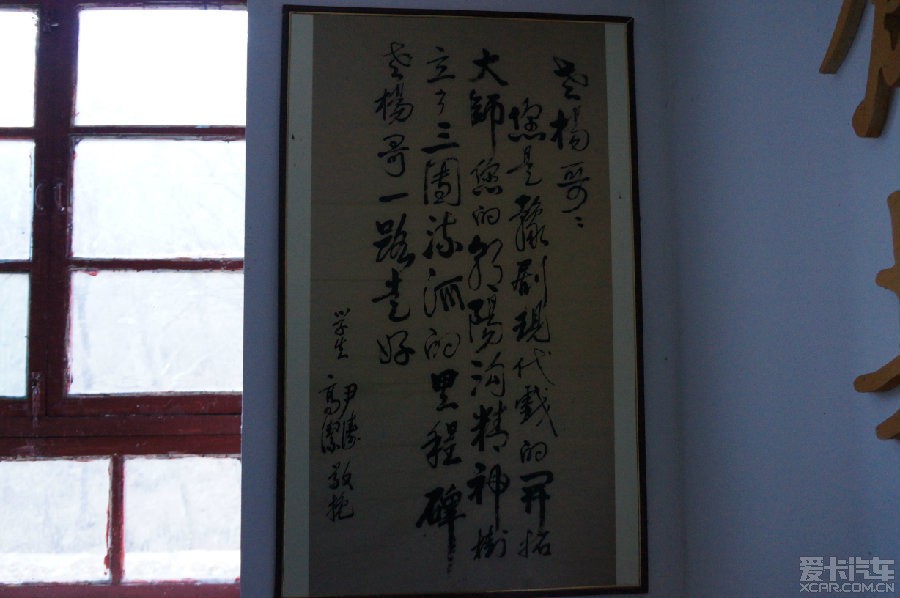 老楊哥:
您是豫剧現代戲的开拓
大師您的朝陽沟精神樹
立了三團流派的里程碑
老楊哥一路走好
学生 尹濤 高潔 敬挽
爱卡汽车
XCAR.COM.CN